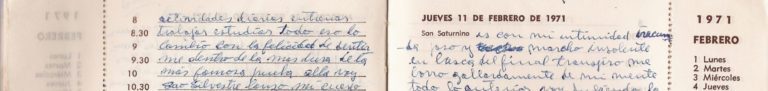 1971
FEBRERO
8 actividades diarias extrañas
8.30 trabajar estudiar todo eso lo
9 cambio con la felicidad de sentir
9.30 me dentro de la mas dura de la
10 más famosa prueba ella voy
10.30 Sao Silvestre lanzo mi cuerpo
JUEVES 11 DE FEBRERO DE 1971
San Saturnino es con mi intimidad
y marcho insolente
en busca del final transpiro me
como gallardamente de mi mente
todo lo anterior voy
1971
FEBRERO
1 Lunes
2 Martes
3 Miércoles
4 Jueves